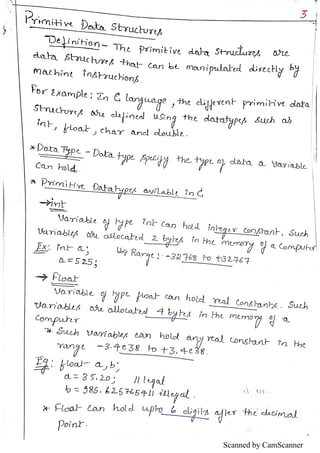 3
Primitive Data Structures
Definition - The primitive data structures are
data structures that can be manipulated directly by
machine instructions.
For Example: In C language, the different primitive data
structures are defined using the datatypes such as
int, float, char and double.
* Data Type - Data type specify the type of data a variable
can hold.
* Primitive Datatypes avilable in C
→ int
Variable of type int can hold integer constant, such
variables are allocated 2 bytes in the memory of a computer
Ex: int a; Range: -32768 to +32767
a = 525;
→ Float
Variable of type float can hold real constants. Such
variables are allocated 4 bytes in the memory of a
Computer
* Such variables can hold any real constant in the
range -3.4e38 to +3.4e38.
Eg: float a, b;
a = 35.20; // legal
b = 985.625765411 illegal.
* Float can hold upto 6 digits after the decimal
point.
Scanned by CamScanner